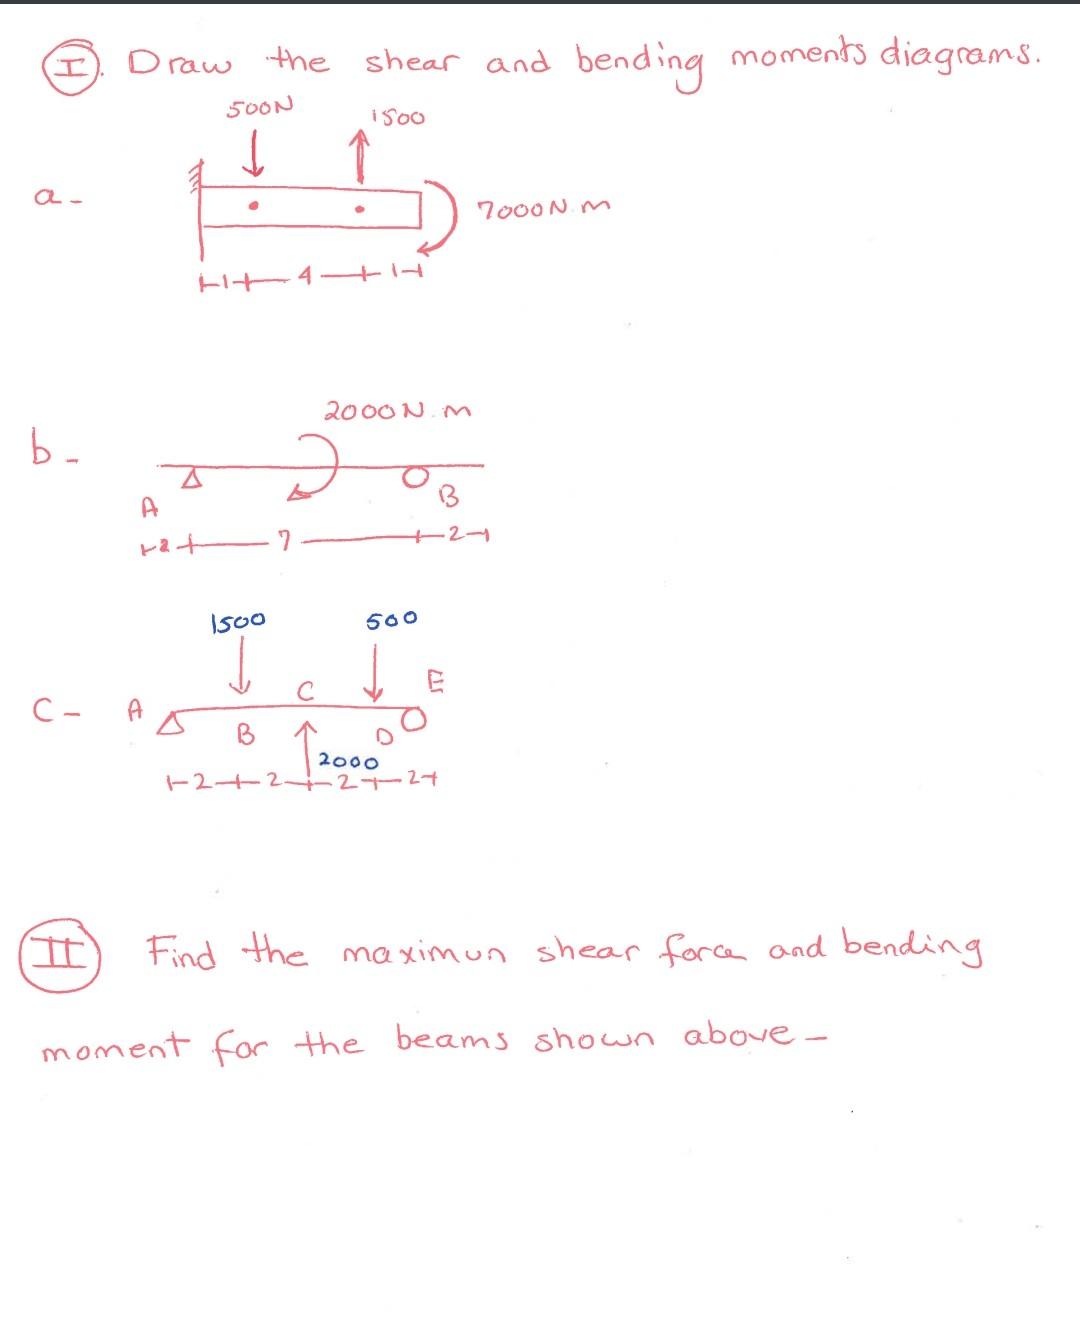 I. Draw the shear and bending moments diagrams.
500N
1500
a-
7000N.m
1 4 1
2000N.m
b-
A
B
2 7 2
1500
500
C
E
C- A
B
D
2000
2 2 2 2
II Find the maximun shear force and bending
moment for the beams shown above-